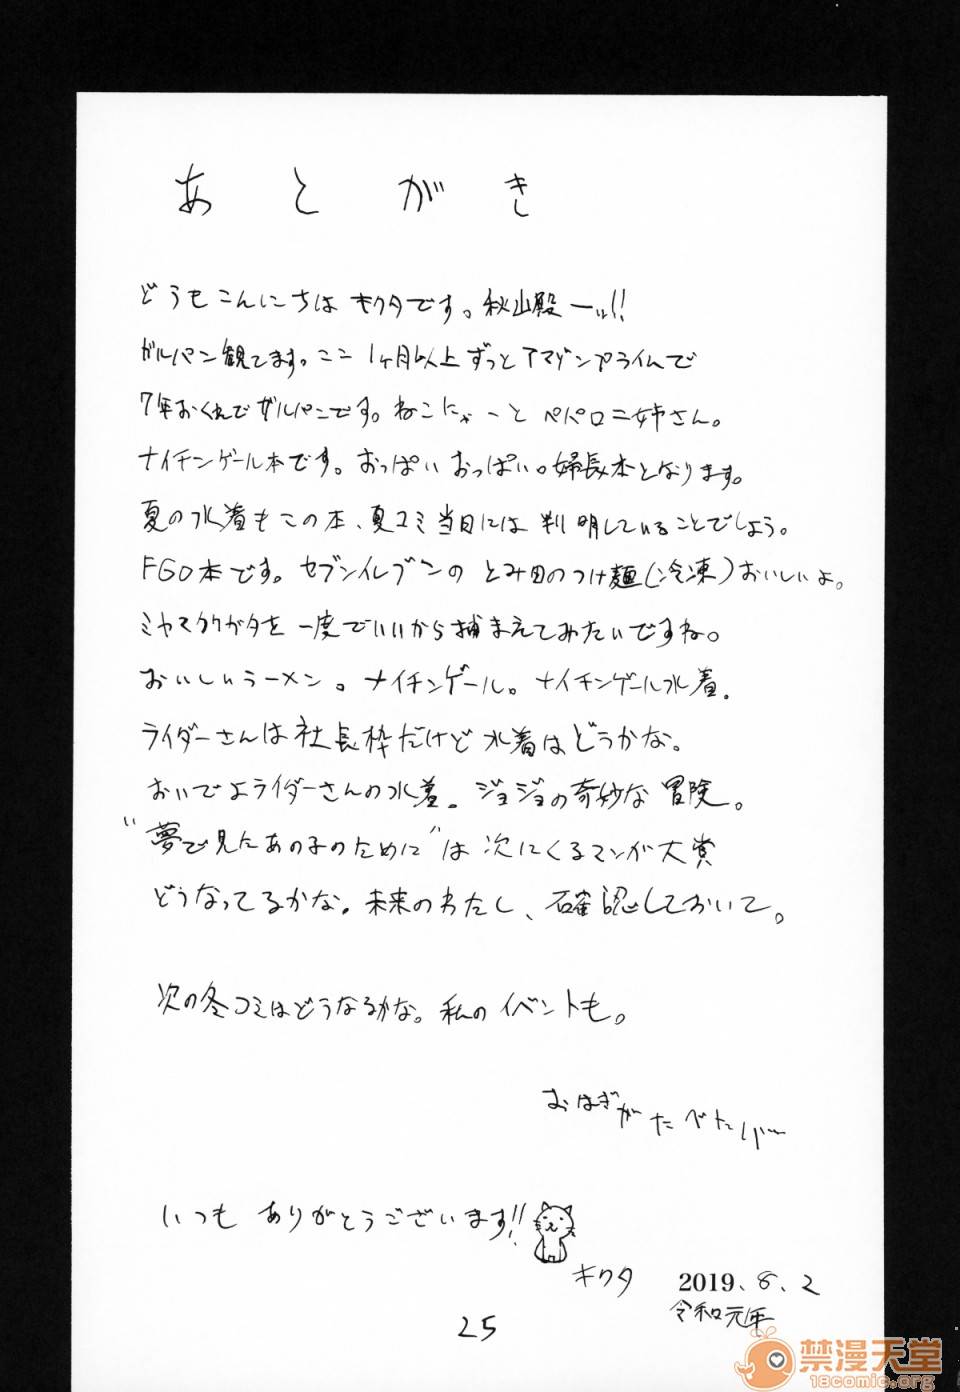 あとがき
どうもこんにちは キクタです。秋山殿ーッ!!
ガルパン観てます。ここ 1ヶ月以上ずっとアマゾンプライムで
7年おくれでガルパンです。ねこにゃーと ペパロニ姉さん。
ナイチンゲール本です。おっぱいおっぱい。婦長本となります。
夏の水着もこの本、夏コミ当日には 判明していることでしょう。
FGO本です。セブンイレブンの とみ田のつけ麺(冷凍)おいしいよ。
ミヤマクワガタを 一度でいいから捕まえてみたいですね。
おいしいラーメン。ナイチンゲール。ナイチンゲール水着。
ライダーさんは社長枠だけど 水着はどうかな。
おいでよライダーさんの水着。ジョジョの奇妙な冒険。
"夢で見たあの子のために"は 次にくるマンガ大賞
どうなってるかな。未来のわたし、確認しておいて。
次の冬コミはどうなるかな。私のイベントも。
おはぎがたべたい
いつも ありがとうございます!!
キクタ 2019.8.2
令和元年
25
禁漫天堂
18comic.org